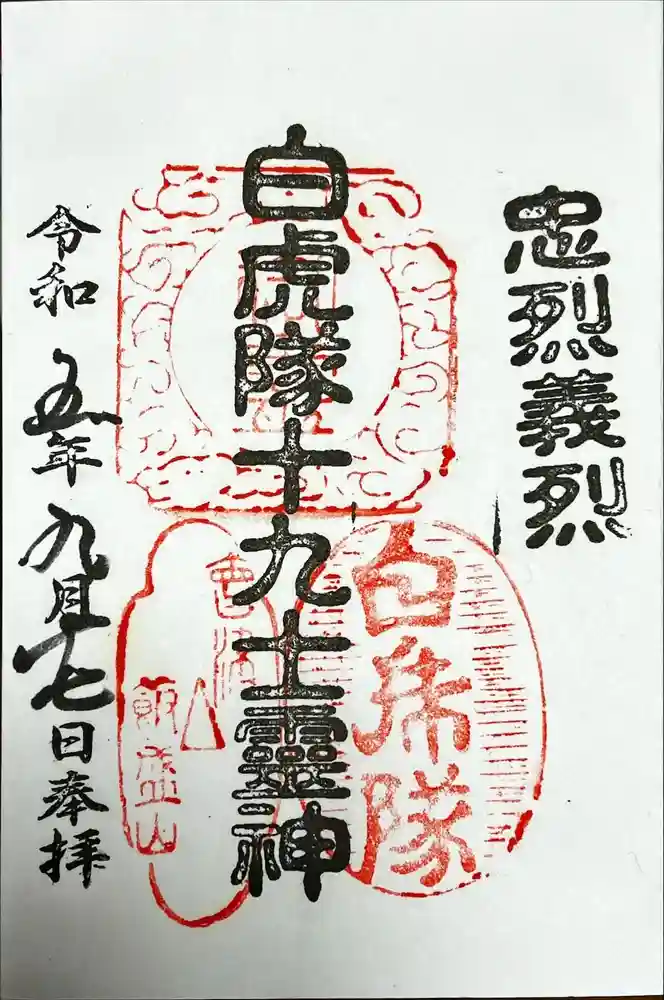 忠烈義烈
白虎隊十九士霊神
白虎隊
會津
飯盛山
令和五年九月十七日奉拝